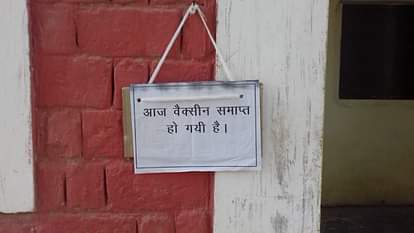 आज वैक्सीन समाप्त
हो गयी है।